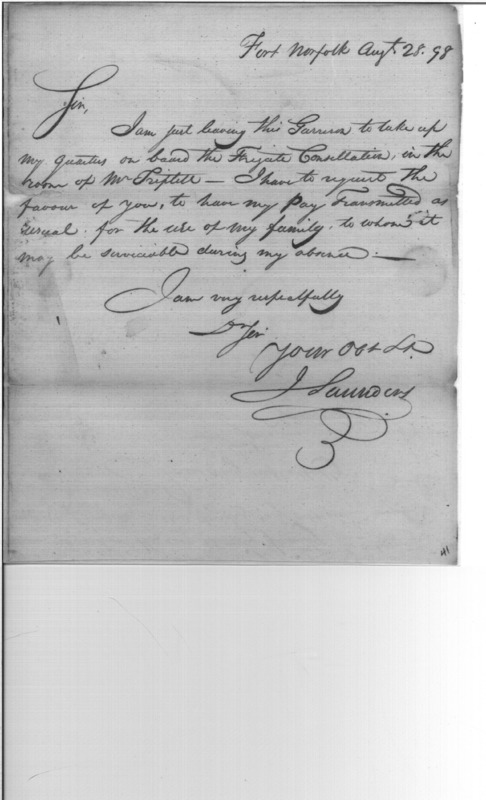 Fort Norfolk Augt. 28. 98
Sir,
I am just leaving this Garrison to take up
my quarters on board the Frigate Constellation, in the
room of Mr Triplett — I have to request the
favour of you, to have my Pay Transmitted as
usual for the use of my family, to whom it
may be serviceable during my absence. —
I am very respectfully
Dr Sir
Your Obt St.
J Saunders
41